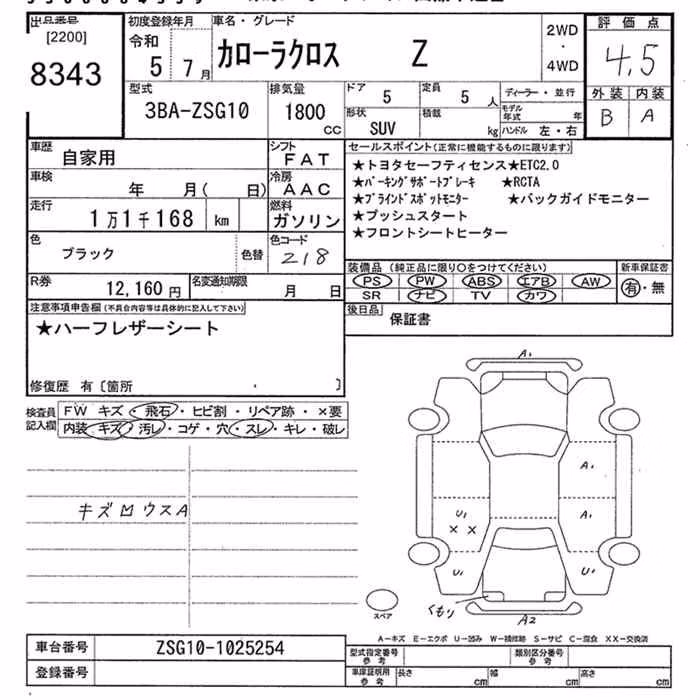 出品番号 初度登録年月 車名・グレード 評価点
[2200] 令和 2WD
8343 5 7月 カローラクロス Z ・ 4.5
4WD
型式 排気量 ドア 5 定員 5 人 ディーラー・並行 外装 内装
3BA-ZSG10 1800 cc 形状 SUV 積載 kg モデル年式 年 B A
ハンドル 左・右
車歴 自家用 シフト FAT セールスポイント(正常に機能するものに限ります)
車検 年 月( 日) 冷房 AAC ★トヨタセーフティセンス★ETC2.0
★パーキングサポートブレーキ ★RCTA
走行 1万1千168 km 燃料 ガソリン ★ブラインドスポットモニター ★バックガイドモニター
★プッシュスタート
色 ブラック 色替 色コード 218 ★フロントシートヒーター
R券 12,160円 名変通知期限 月 日 装備品(純正品に限り○をつけてください) 新車保証書
PS PW ABS エアB AW 有・無
SR ナビ TV カワ
注意事項申告欄(不具合内容等は具体的に記入して下さい) 後日品 保証書
★ハーフレザーシート
修復歴 有〔箇所 〕
検査員記入欄 FW キズ・飛石・ヒビ割・リペア跡・×要
内装 キズ・汚レ・コゲ・穴・スレ・キレ・破レ
A1
A1
キズ凹ウスA
U1 A1
× ×
U1 U1
くもり
スペア
A2
A-キズ E-エクボ U-凹み W-補修跡 S-サビ C-腐食 XX-交換済
車台番号 ZSG10-1025254 型式指定番号 参考 類別区分番号 参考
登録番号 車庫証明用 参考 長さ cm 幅 cm 高さ cm